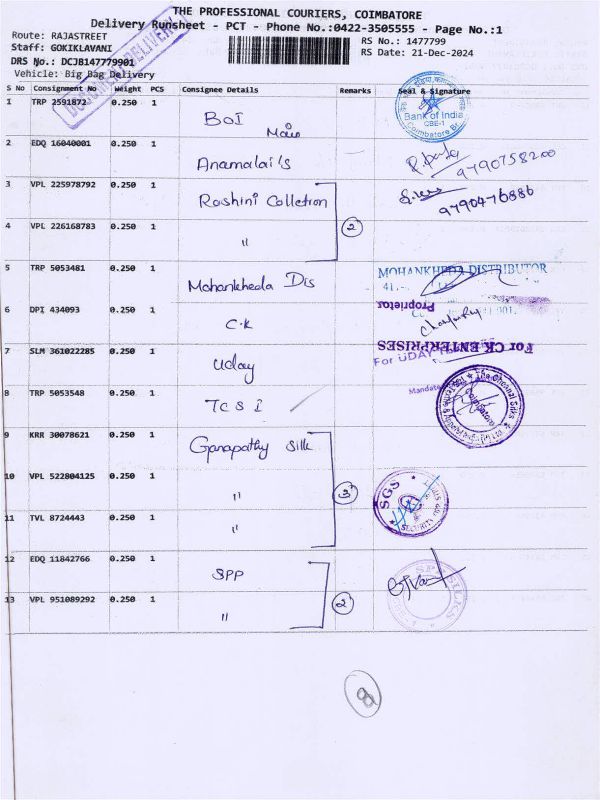 THE PROFESSIONAL COURIERS, COIMBATORE
Delivery Runsheet - PCT - Phone No.:0422-3505555 - Page No.:1
Route: RAJASTREET
RS No.: 1477799
Staff: GOKIKLAVANI
RS Date: 21-Dec-2024
DRS No.: DCJB147779901
Vehicle: Big Bag Delivery
S No Consignment No Weight PCS Consignee Details Remarks Seal & Signature
1 TRP 2591872 0.250 1 BOI Main
Bank of India
CBE-1
Coimbatore Br.
2 EDQ 16040001 0.250 1 Anamalai's
9790758200
3 VPL 225978792 0.250 1 Roshini Colletion
9790476886
2
4 VPL 226168783 0.250 1 "
5 TRP 5053481 0.250 1 Mohankheda Dis
MOHANKHEDA DISTRIBUTOR
Proprietor
6 DPI 434093 0.250 1 C.K
For CK ENTERPRISES
7 SLM 361022285 0.250 1 Uday
For UDAY
8 TRP 5053548 0.250 1 TCS I
The Chennai Silks
Coimbatore
9 KRR 30078621 0.250 1 Ganapathy Silk
10 VPL 522804125 0.250 1 "
3
SGS
SECURITY
11 TVL 8724443 0.250 1 "
12 EDQ 11842766 0.250 1 SPP
SPP SILKS
2
13 VPL 951089292 0.250 1 "
8